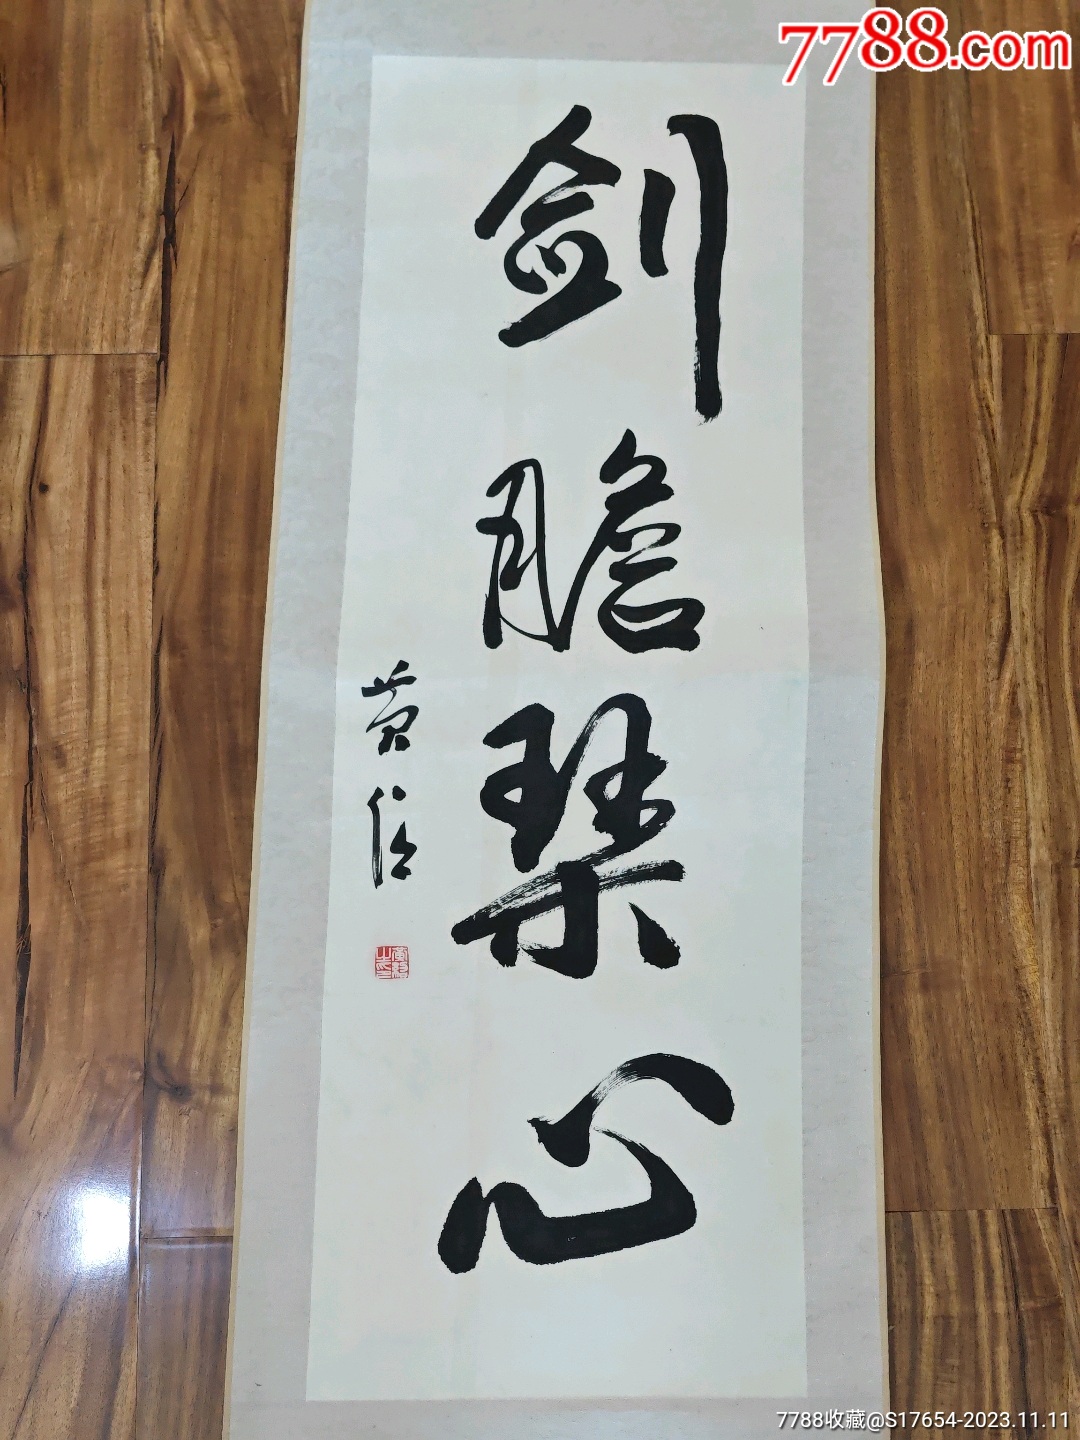 7788.com
剑膽琹心
黄
7788收藏@S17654-2023.11.11